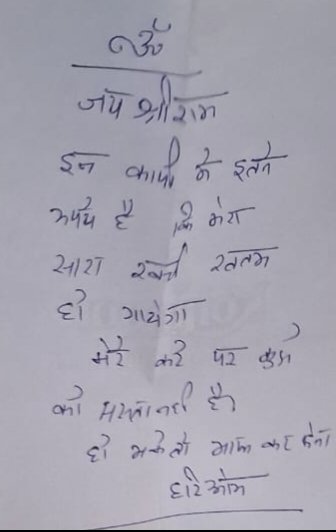 ॐ
जय श्री राम
इन कापी मे इतने
रूपये है कि मेरा
सारा खर्च खतम
हो जायेगा
मेरे करे पर कुछ
को है।
हो सके तो माफ कर देना
हरि ओम